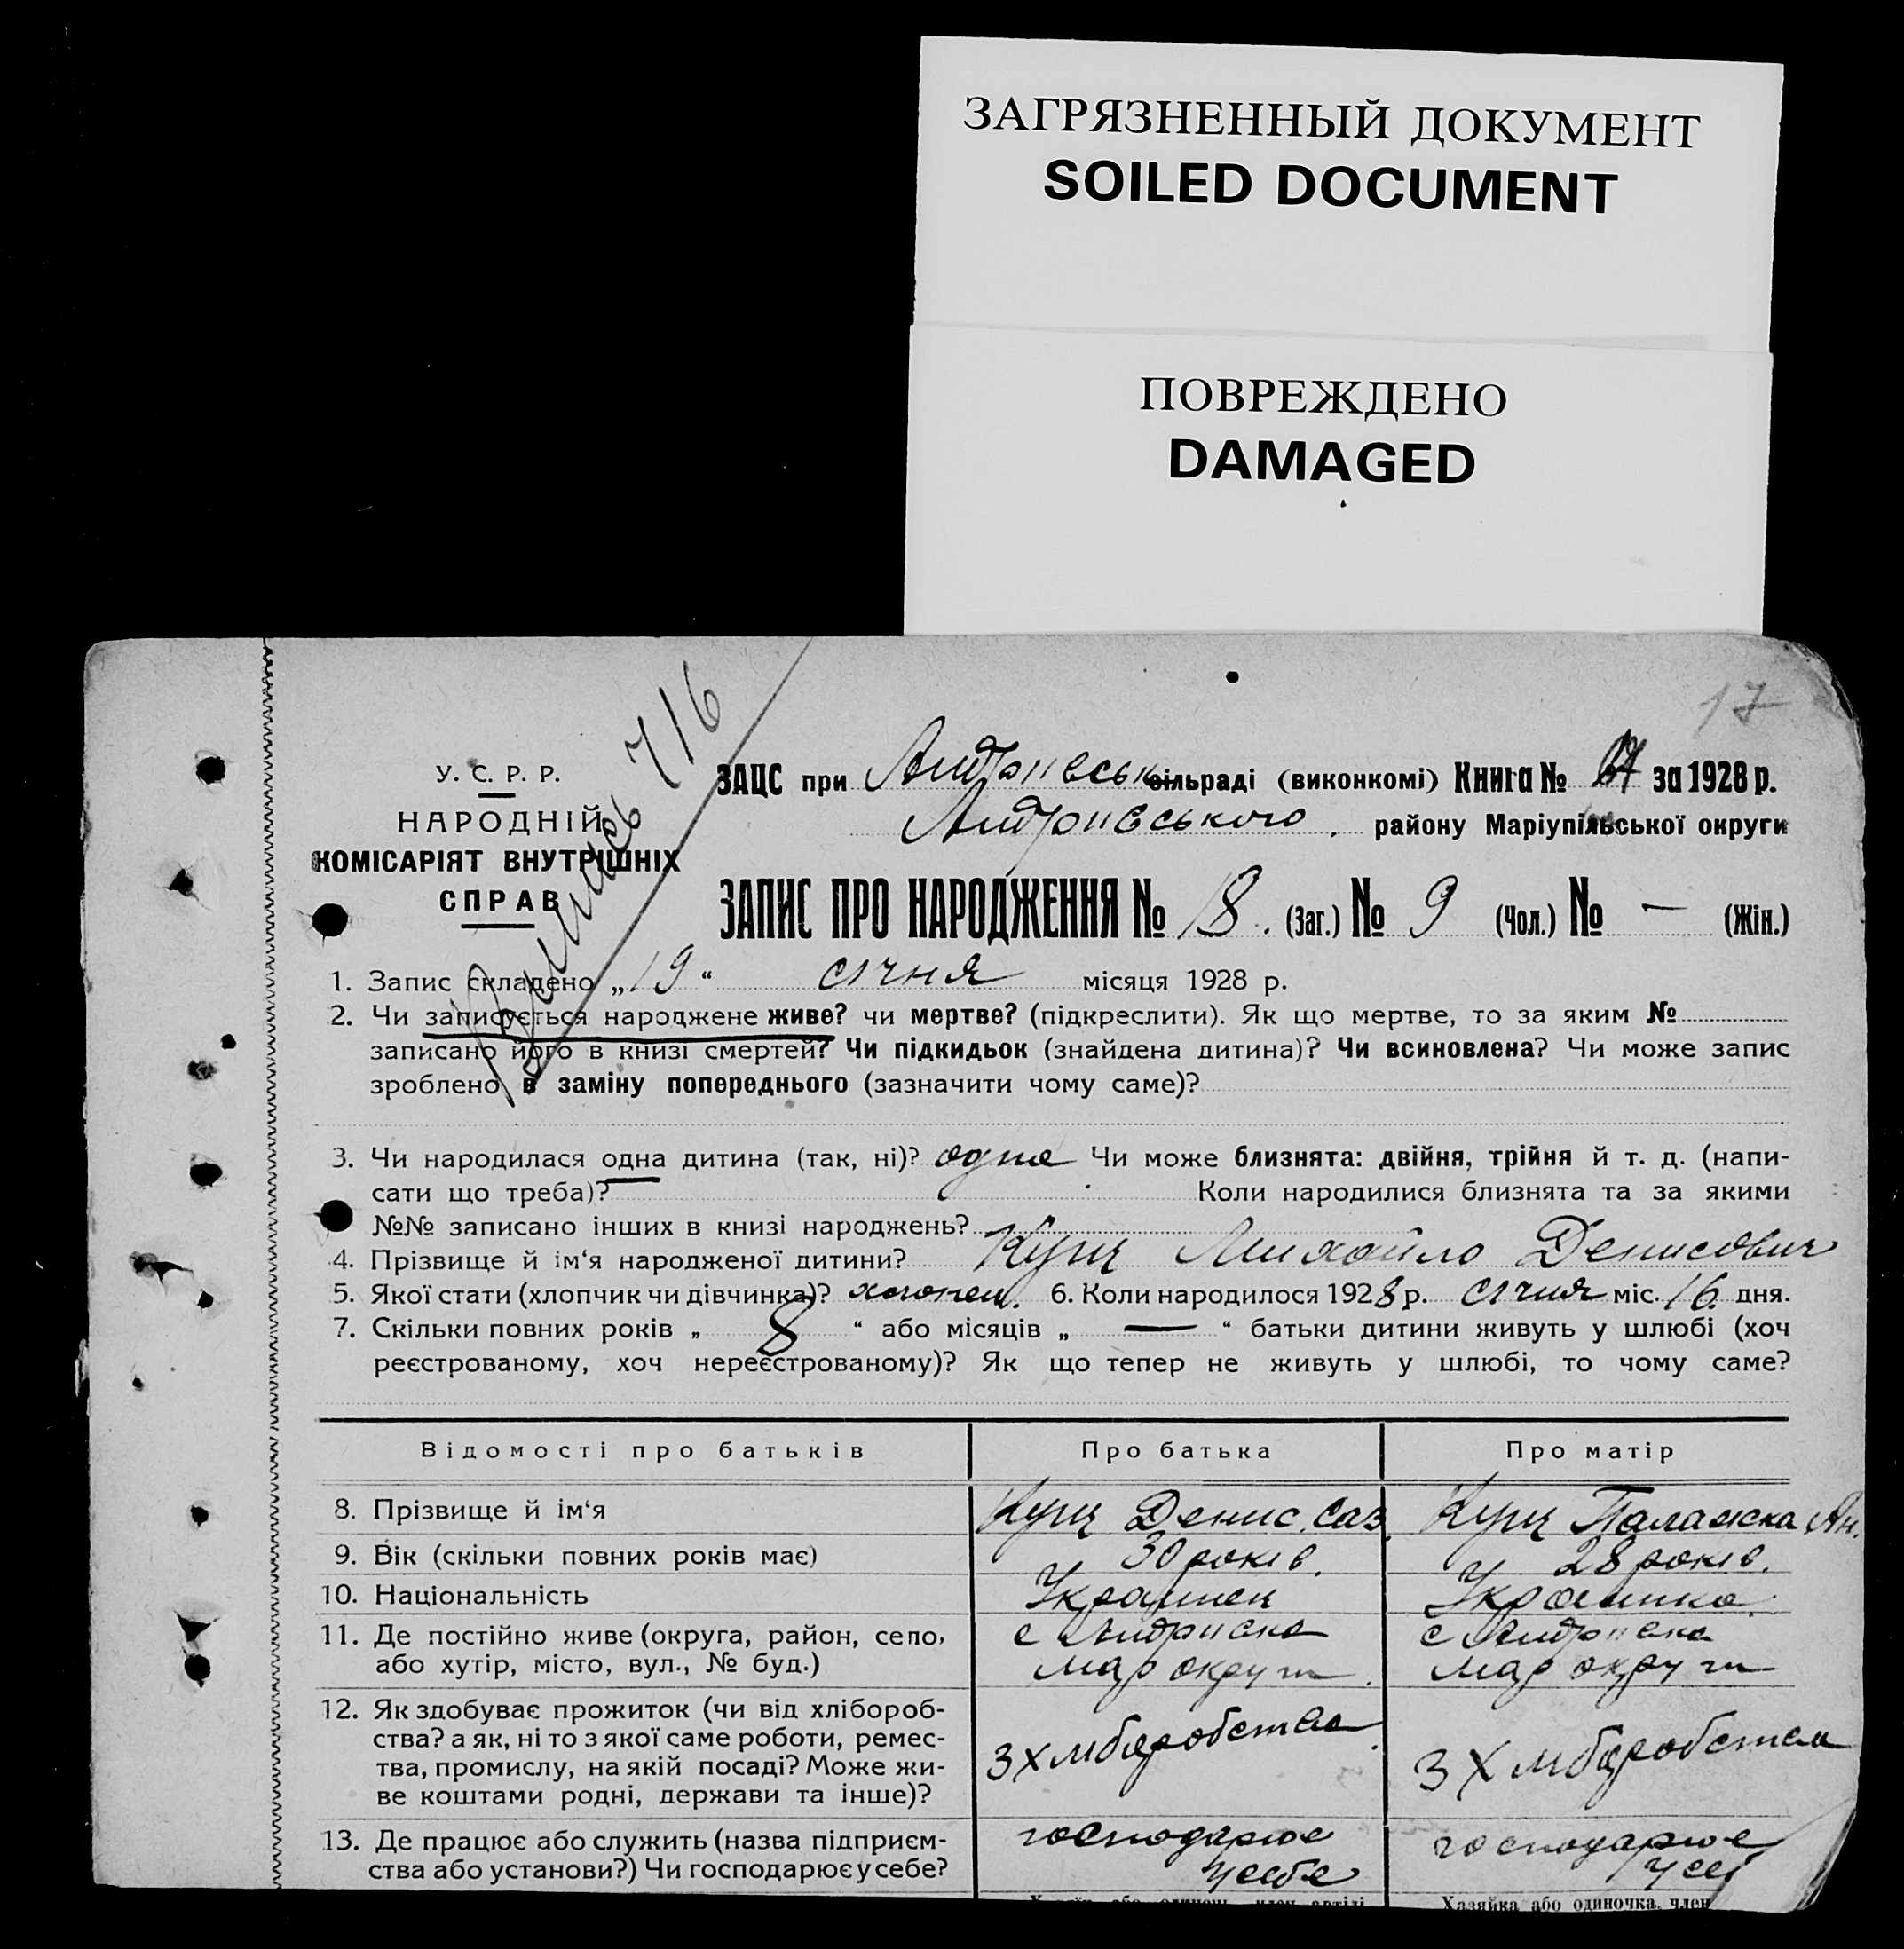 ЗАГРЯЗНЕННЫЙ ДОКУМЕНТ
SOILED DOCUMENT
ПОВРЕЖДЕНО
DAMAGED
17
716
У. С. Р. Р.
НАРОДНІЙ
КОМІСАРІЯТ ВНУТРІШНІХ
СПРАВ
ЗАЦС при Андріївськ сільраді (виконкомі) Книга № за 1928 р.
Андріївського району Маріупільської округи
ЗАПИС ПРО НАРОДЖЕННЯ № 18. (Заг.) № 9 (Чол.) № — (Жін.)
1. Запис складено „19“ січня місяця 1928 р.
2. Чи записується народжене живе? чи мертве? (підкреслити). Як що мертве, то за яким №
записано його в книзі смертей? Чи підкидьок (знайдена дитина)? Чи всиновлена? Чи може запис
зроблено в заміну попереднього (зазначити чому саме)?
3. Чи народилася одна дитина (так, ні)? одна Чи може близнята: двійня, трійня й т. д. (напи-
сати що треба)? Коли народилися близнята та за якими
№№ записано інших в книзі народжень?
4. Прізвище й ім‘я народженої дитини? Куц Михайло Денисович
5. Якої стати (хлопчик чи дівчинка)? хлопец. 6. Коли народилося 1928 р. січня міс. 16 дня.
7. Скільки повних років „ 8 “ або місяців „ — “ батьки дитини живуть у шлюбі (хоч
реєстрованому, хоч нереєстрованому)? Як що тепер не живуть у шлюбі, то чому саме?
Відомості про батьків Про батька Про матір
8. Прізвище й ім‘я Куц Денис. Саз. Куц Палажка Ан.
9. Вік (скільки повних років має) 30 років. 28 років.
10. Національність Українец Українка.
11. Де постійно живе (округа, район, село, с Андриевка с Андриевка
або хутір, місто, вул., № буд.) Мар округи Мар округи
12. Як здобуває прожиток (чи від хлібороб-
ства? а як, ні то з якої саме роботи, ремес- З хліборобства З хліборобства
тва, промислу, на якій посаді? Може жи-
ве коштами родні, держави та інше)?
13. Де працює або служить (назва підприєм- господарює господарює
ства або установи?) Чи господарює у себе? у себе у себ
Хазяїн або одинець, член артілі Хазяйка або одиночка, член